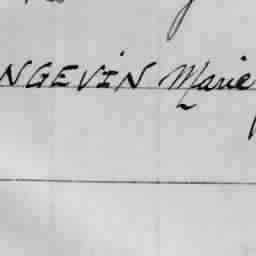 NGEVIN Marie